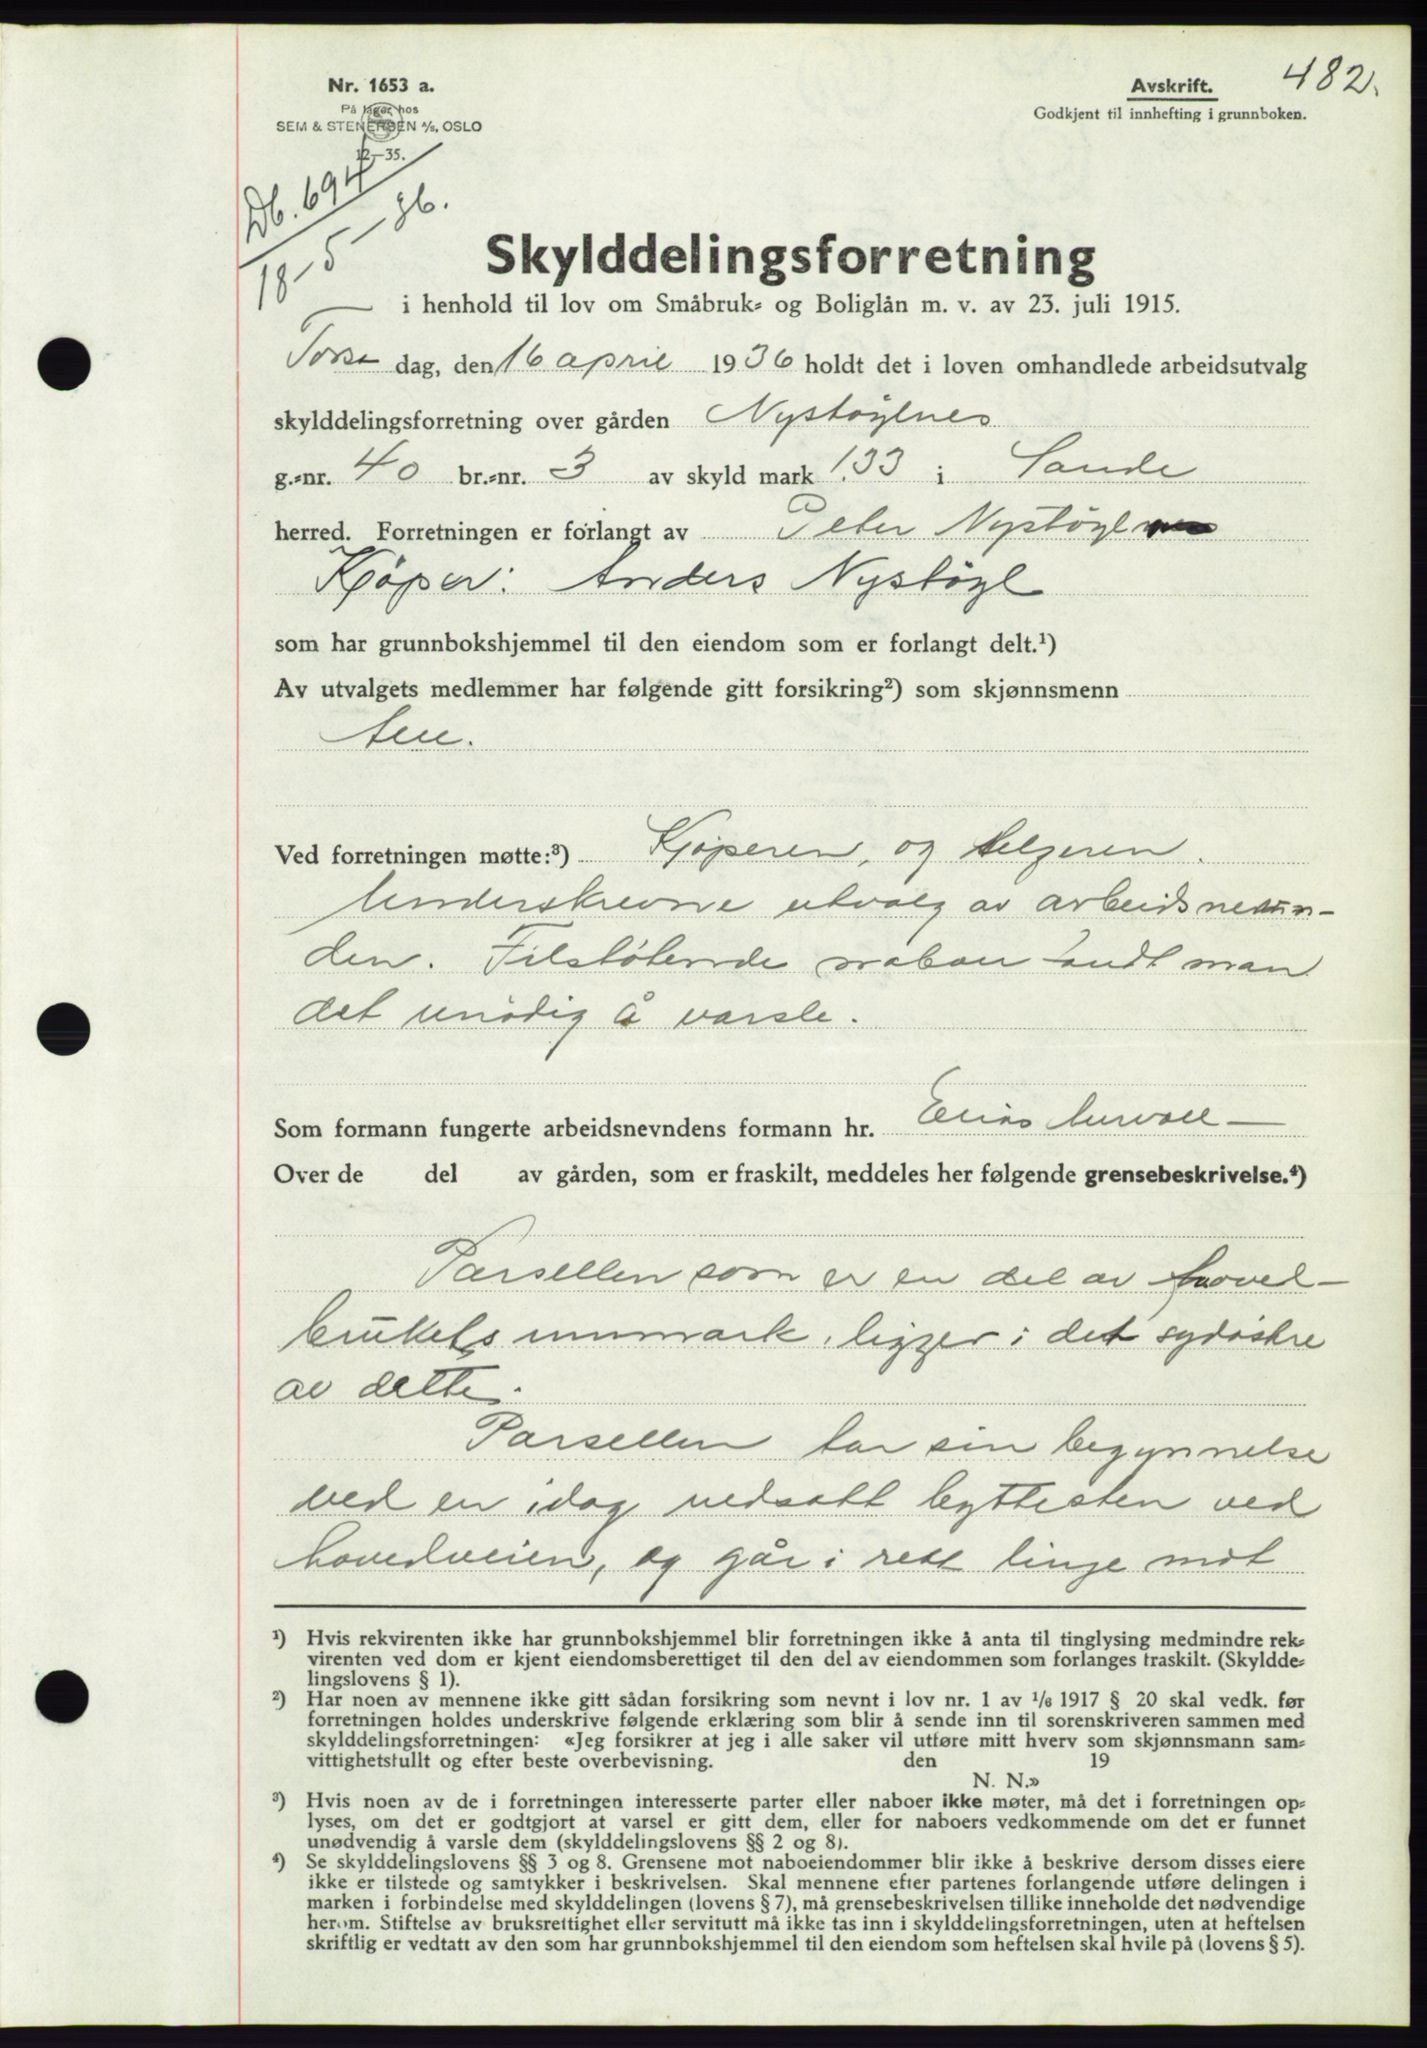 482.
Nr. 1653 a.
På lager hos
SEM & STENERSEN A/S, OSLO
12—35.
Avskrift.
Godkjent til innhefting i grunnboken.
Db. 694
18-5-36.
Skylddelingsforretning
i henhold til lov om Småbruk- og Boliglån m. v. av 23. juli 1915.
Torsdag, den 16 april 1936 holdt det i loven omhandlede arbeidsutvalg
skylddelingsforretning over gården Nystøylnes
g.-nr. 40 br.-nr. 3 av skyld mark 1.33 i Sande
herred. Forretningen er forlangt av Peter Nystøyl
Kjøper: Anders Nystøyl
som har grunnbokshjemmel til den eiendom som er forlangt delt.¹)
Av utvalgets medlemmer har følgende gitt forsikring²) som skjønnsmenn
Alle.
Ved forretningen møtte:³) Kjøperen, og selgeren.
Underskrevne utvalg av arbeidsnevn-
den. Tilstøtende naboer fandt man
det unødig å varsle.
Som formann fungerte arbeidsnevndens formann hr. Elias
Over de del av gården, som er fraskilt, meddeles her følgende grensebeskrivelse.⁴)
Parsellen som er en del av hoved-
brukets innmark, ligger i det sydøstre
av dette.
Parsellen tar sin begynnelse
ved en idag nedsatt byttesten ved
hovedveien, og går i rett linje mot
¹) Hvis rekvirenten ikke har grunnbokshjemmel blir forretningen ikke å anta til tinglysing medmindre rek-
virenten ved dom er kjent eiendomsberettiget til den del av eiendommen som forlanges fraskilt. (Skyldde-
lingslovens § 1).
²) Har noen av mennene ikke gitt sådan forsikring som nevnt i lov nr. 1 av 1/6 1917 § 20 skal vedk. før
forretningen holdes underskrive følgende erklæring som blir å sende inn til sorenskriveren sammen med
skylddelingsforretningen: «Jeg forsikrer at jeg i alle saker vil utføre mitt hverv som skjønnsmann sam-
vittighetsfullt og efter beste overbevisning. den 19
N. N.»
³) Hvis noen av de i forretningen interesserte parter eller naboer ikke møter, må det i forretningen op-
lyses, om det er godtgjort at varsel er gitt dem, eller for naboers vedkommende om det er funnet
unødvendig å varsle dem (skylddelingslovens §§ 2 og 8).
⁴) Se skylddelingslovens §§ 3 og 8. Grensene mot naboeiendommer blir ikke å beskrive dersom disses eiere
ikke er tilstede og samtykker i beskrivelsen. Skal mennene efter partenes forlangende utføre delingen i
marken i forbindelse med skylddelingen (lovens § 7), må grensebeskrivelsen tillike inneholde det nødvendige
herom. Stiftelse av bruksrettighet eller servitutt må ikke tas inn i skylddelingsforretningen, uten at heftelsen
skriftlig er vedtatt av den som har grunnbokshjemmel til den eiendom som heftelsen skal hvile på (lovens § 5).